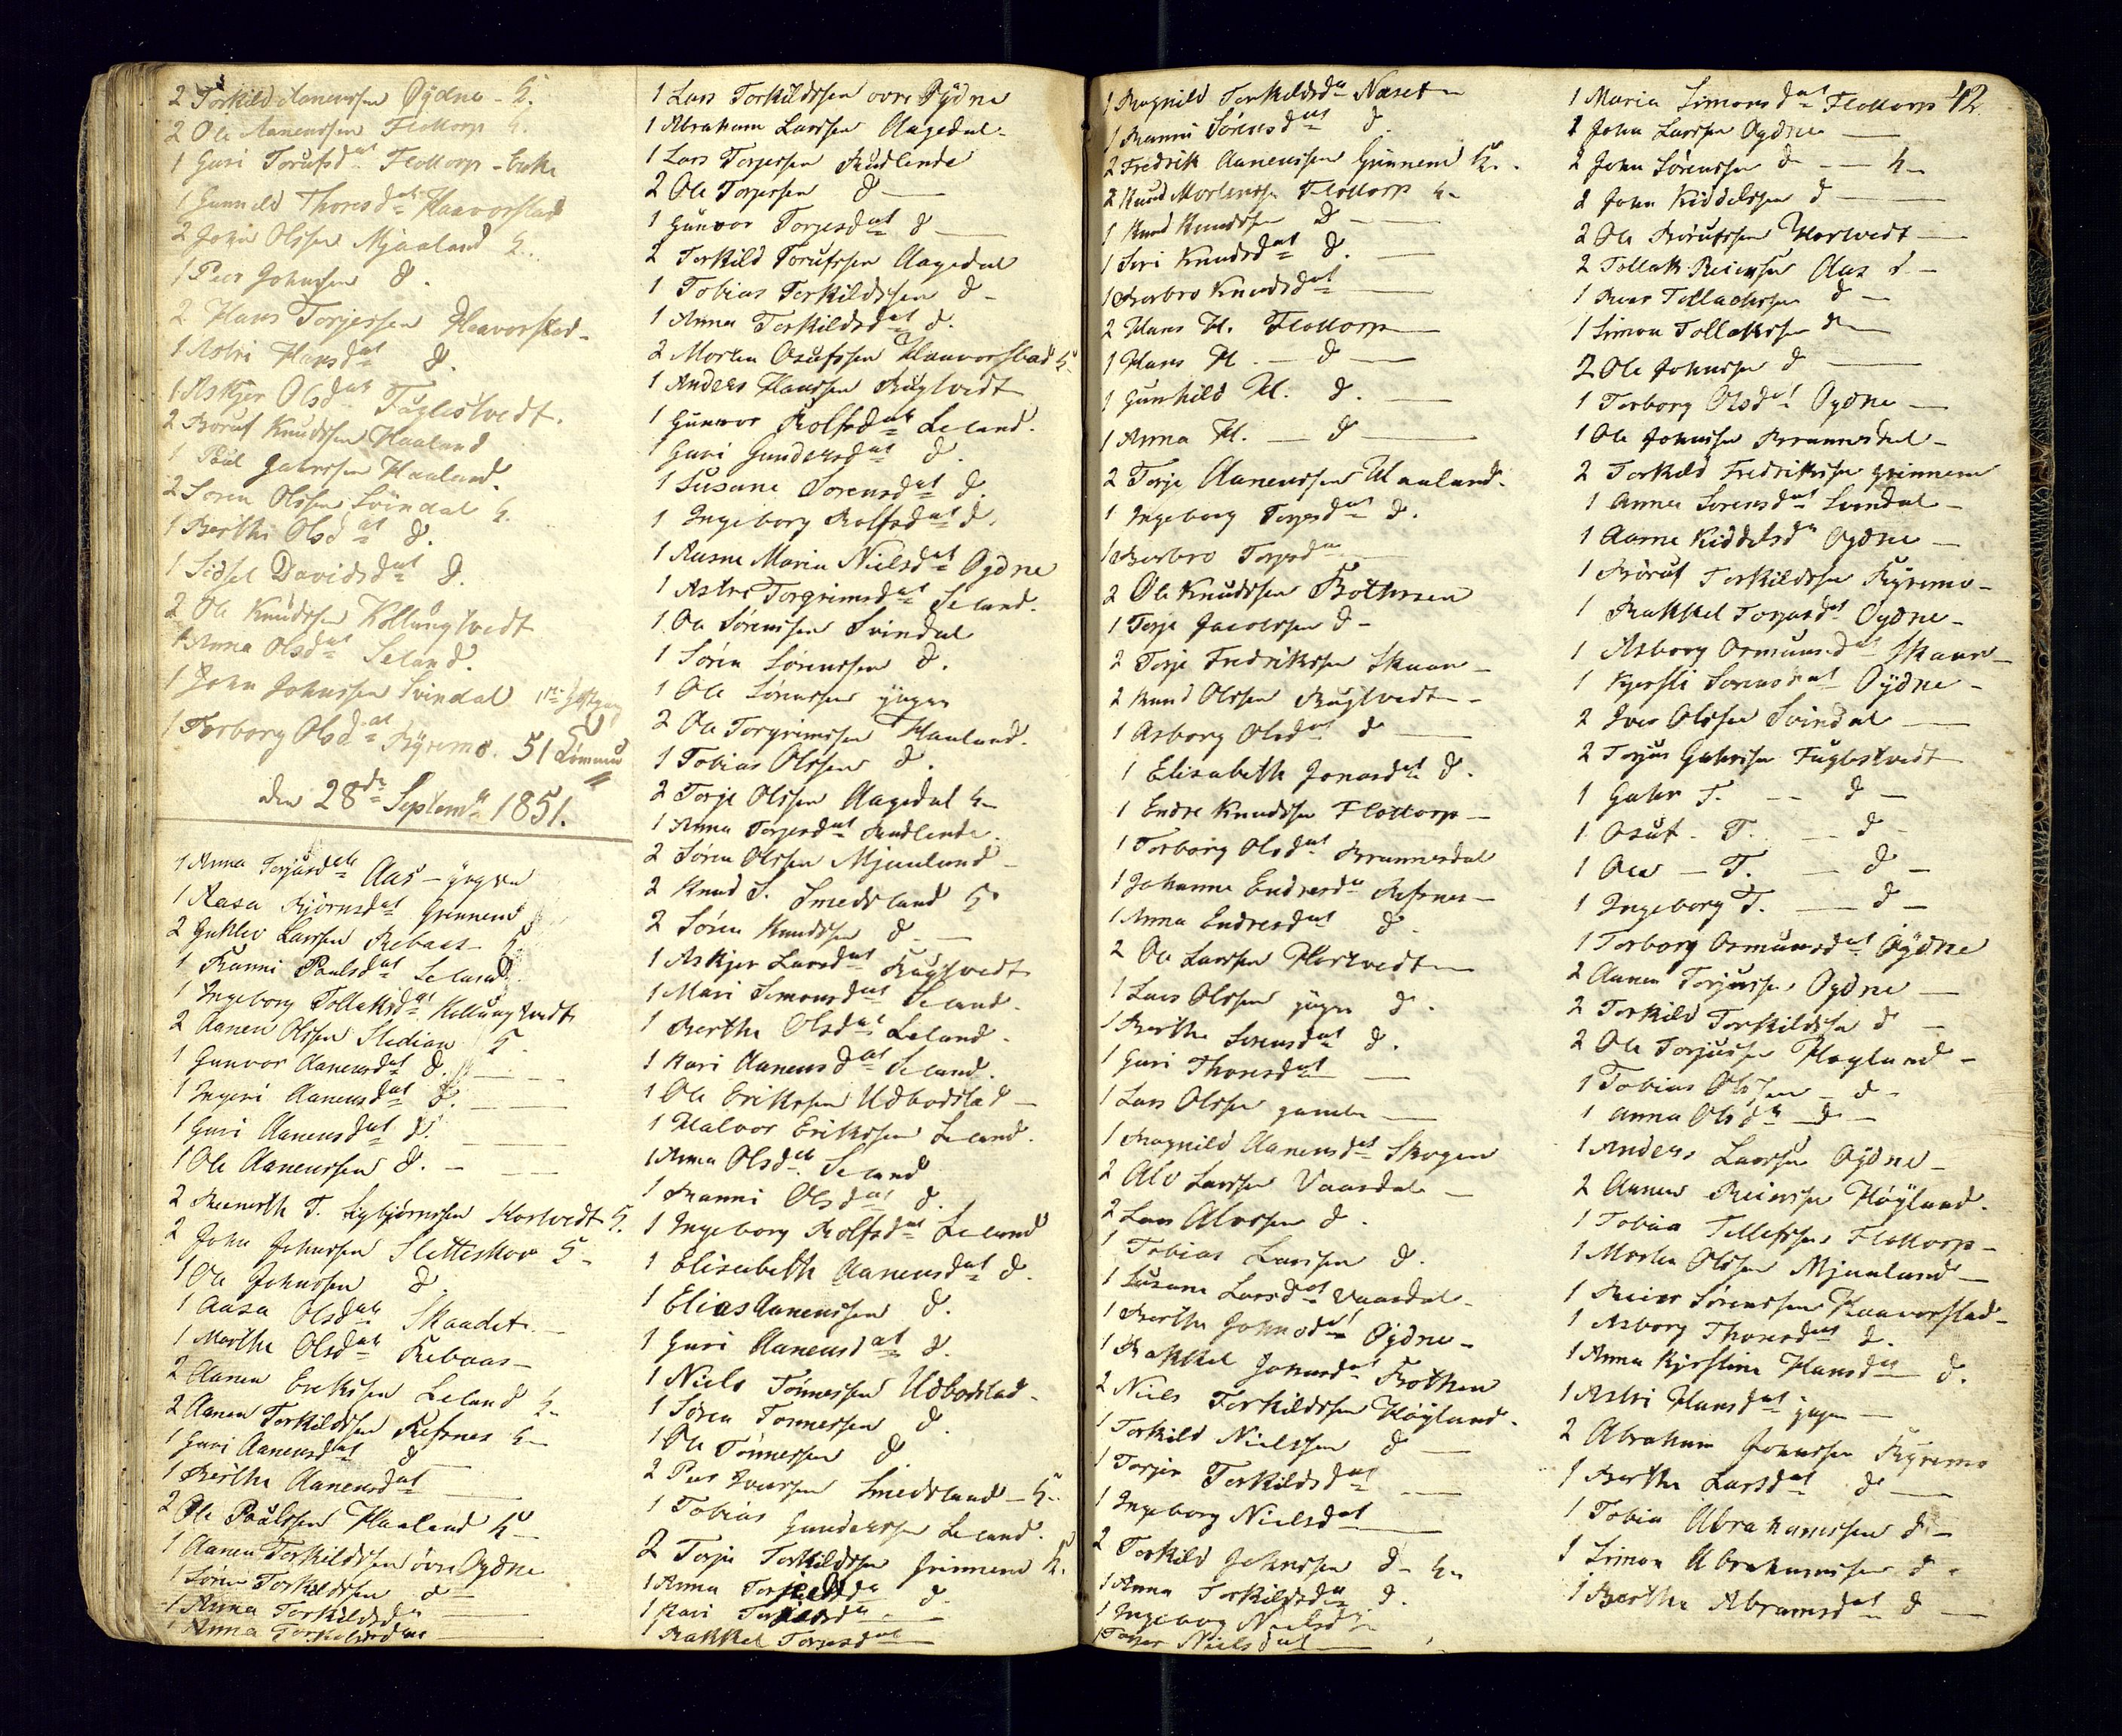 2 Torkild Aanenssen Øÿdna - h.
2 Ole Aanenssen Flottorp h.
1 Guri Torufsdat Flottorp - Enke
1 Gunnild Thoresdat Haavorstad
2 John Olssen Mjaaland h.
1 Peer Johnssen d.
2 Hans Torjerssen Haavorstad -
1 Astri Hansdat d.
1 Askjer Olsdat Fuglestvedt.
2 Boruf Knudssen Haaland
1 Paul Haaland.
2 Søren Olssen Svindal h.
1 Berthe Olsdat d.
1 Sidsel Davidsdat d.
2 Ole Knudssen Kollungtvedt
1 Anna Olsdat Seland.
1 John Johnssen Svindal
1 Torborg Olsdat Rÿremo. 51
den 28de Septembr 1851.
1 Anna Torjusdat Aas - yngre
1 Aasa Biørnsdat Grinnem
2 Gunlev Larssen Rebaas h
1 Ranni Paulsdat Seland
1 Ingeborg Tollaksdat Kollungtvedt
2 Aanen Olssen Stedian h.
1 Gunvor Aanensdat d. —
1 Ingeri Aanensdat d. —
1 Guri Aanensdat d. —
1 Ole Aanenssen d. —
2 Berneth T. Sigbjørnssen Hortvedt h.
2 John Johnssen Sletteskov h -
1 Ole Johnssen d
1 Aasa Olsdat Skaadet —
1 Marthe Olsdat Rebaas —
2 Aanen Erikssen Leland h.
2 Aanen Torkildssen Refsnes h -
1 Guri Aanensdat d —
1 Berthe Aanensdat —
2 Ole Paulssen Haaland h -
1 Aanen Torkildssen øvre Oydne
1 Søren Torkildssen d —
1 Anna Torkildsda —
1 Anna Torkildsdat —
1 Lars Torkildssen øvre Øÿdne
1 Abraham Larssen Aagedal -
1 Lars Torjerssen Rudlende
2 Ole Torjerssen d —
1 Gunvor Torjesdat d —
2 Torkild Torufssen Aagedal
1 Tobias Torkildssen d -
1 Anna Torkildsdat d.
2 Morten Osufssen Haavorstad h
1 Anders Hanssen Rugtvedt
1 Gunvor Rolfsdat Leland.
1 Guri Gundersdat d.
1 Susane Sorensdat d.
1 Ingeborg Rolfsdat d.
1 Rasne Maria Nielsdat Oydne
1 Astri Torgrimsdat Seland.
1 Ole Sørenssen Svindal
1 Søren Sørenssen d.
1 Ole Sørenssen yngre
2 Ole Torgrimssen Haaland.
1 Tobias Olssen d.
2 Torje Olssen Aagedal h -
1 Anna Torjesdat Rudlende.
2 Søren Olssen Mjaaland -
2 Knud S. Smedsland h
2 Søren Knudssen d —
1 Askjer Larsdat Rugtvedt
1 Mari Simonsdat Seland.
1 Berthe Olsdat Leland.
1 Kari Aanensdat Seland.
1 Ole Erikssen Udbodstad -
1 Halvor Erikssen Leland.
1 Anna Olsdat Seland
1 Ranni Olsdat d.
1 Ingeborg Rolfsdat Leland
1 Elisabeth Aanensdat d.
1 Elias Aanenssen d.
1 Guri Aanensdat d.
1 Niels Tønnessen Udbodstad -
1 Søren Tønnessen d.
1 Ole Tønnessen d
2 Peer Iverssen Smedsland - h.
1 Tobias Gunderssen Leland.
2 Torje Torkildssen Grinnem h.
1 Anna d.
1 Kari d. —
1 Rakkel Torjesdat —
1 Ragnild Torkildsda Naset -
1 Ranni Sörensdat d.
2 Fredrik Aanenssen Grinnem h.
2 Knud Mortenssen Flottorp h -
1 Knud Knudssen d —
1 Siri Knudsdat d. —
1 Berbro Knudsdat —
2 Hans H. Flottorp —
1 Hans H. — d —
1 Gunhild H. d. —
1 Anna H. — d —
2 Torje Aanenssen Haaland.
1 Ingeborg Torjesdat d.
1 Berbro Torjesda —
2 Ole Knudssen Bothersen
1 Torje Jacobssen d -
2 Torje Fredrikssen Skaar -
2 Knud Olssen Rugtvedt -
1 Asborg Olsdat d —
1 Elisabeth Jonasdat d.
1 Endre Knudssen Flottorp -
1 Torborg Olsdat Brunnesdal
1 Johanne Endresda Refsnes -
1 Anna Endresdat d.
2 Ole Larssen Hortvedt —
1 Lars Olssen yngre d.
1 Berthe Sorensdat d.
1 Guri Thoresdat —
1 Lars Olssen gamle —
1 Ragnild Aanensdat Skogen
2 Alv Larssen Vaardal -
2 Lars Alvssen d.
1 Tobias Larssen d.
1 Susane Larsdat Vaardal -
1 Berthe Johnsdat Oydne -
1 Rakkel Jonasdat Bothen
2 Niels Torkildssen Høÿland.
1 Torkild Nielssen d —
1 Torjer Torkildsdat —
1 Ingeborg Nielsdat —
2 Torkild Johnssen d - h -
1 Anna Torkildsda d.
1 Ingeborg Nielsda -
1 Torjer Nielsdat —
1 Maria Simonsdat Flottorp 12.
1 John Larssen Oydne —
2 John Sörenssen d — h -
2 John Kiddelssen d —
2 Ole Børufssen Hortvedt —
2 Tollak Reierssen Aas d -
1 Reier Tollakssen d —
1 Simon Tollakssen d —
2 Ole Johnssen d —
1 Torborg Olsdat Oydne —
1 Ole Johnssen Brunnesdal -
2 Torkild Fredrikssen Grinnem
1 Anna Sorensdat Svindal -
1 Aanne Kiddelsda Oydne —
1 Børuf Torkildssen Rÿremo -
1 Rakkel Torjusdat Oydne -
1 Asborg Osmunsdat Skaar —
1 Kjersti Sorensdat Oÿdne -
2 Iver Olssen Svindal —
2 Torjus Gahrssen Fuglestvedt
1 Gahr T. — d —
1 Osuf - T. — d -
1 Ole — T. — d —
1 Ingeborg T. — d —
1 Torborg Osmunsdat Øÿdne
2 Aanen Torjussen Oydne —
2 Torkild Torkildssen d —
2 Ole Torjussen Høgland -
1 Tobias Olssen - d -
1 Anna Olsda d —
1 Anders Larssen Oÿdne -
2 Aanen Reierssen Høÿland.
1 Tobias Tellefssen Flottorp -
1 Morten Olssen Mjaaland —
1 Reier Sørenssen Haavorstad -
1 Asborg Thoresdat d.
1 Anna Kjerstine Hansdat d.
1 Astri Hansdat yngre —
2 Abraham Johnssen Rÿremo
1 Berthe Larsdat d —
1 Tobias Abrahamssen d -
1 Simon Abrahamssen d -
1 Berthe Abramsdat d —